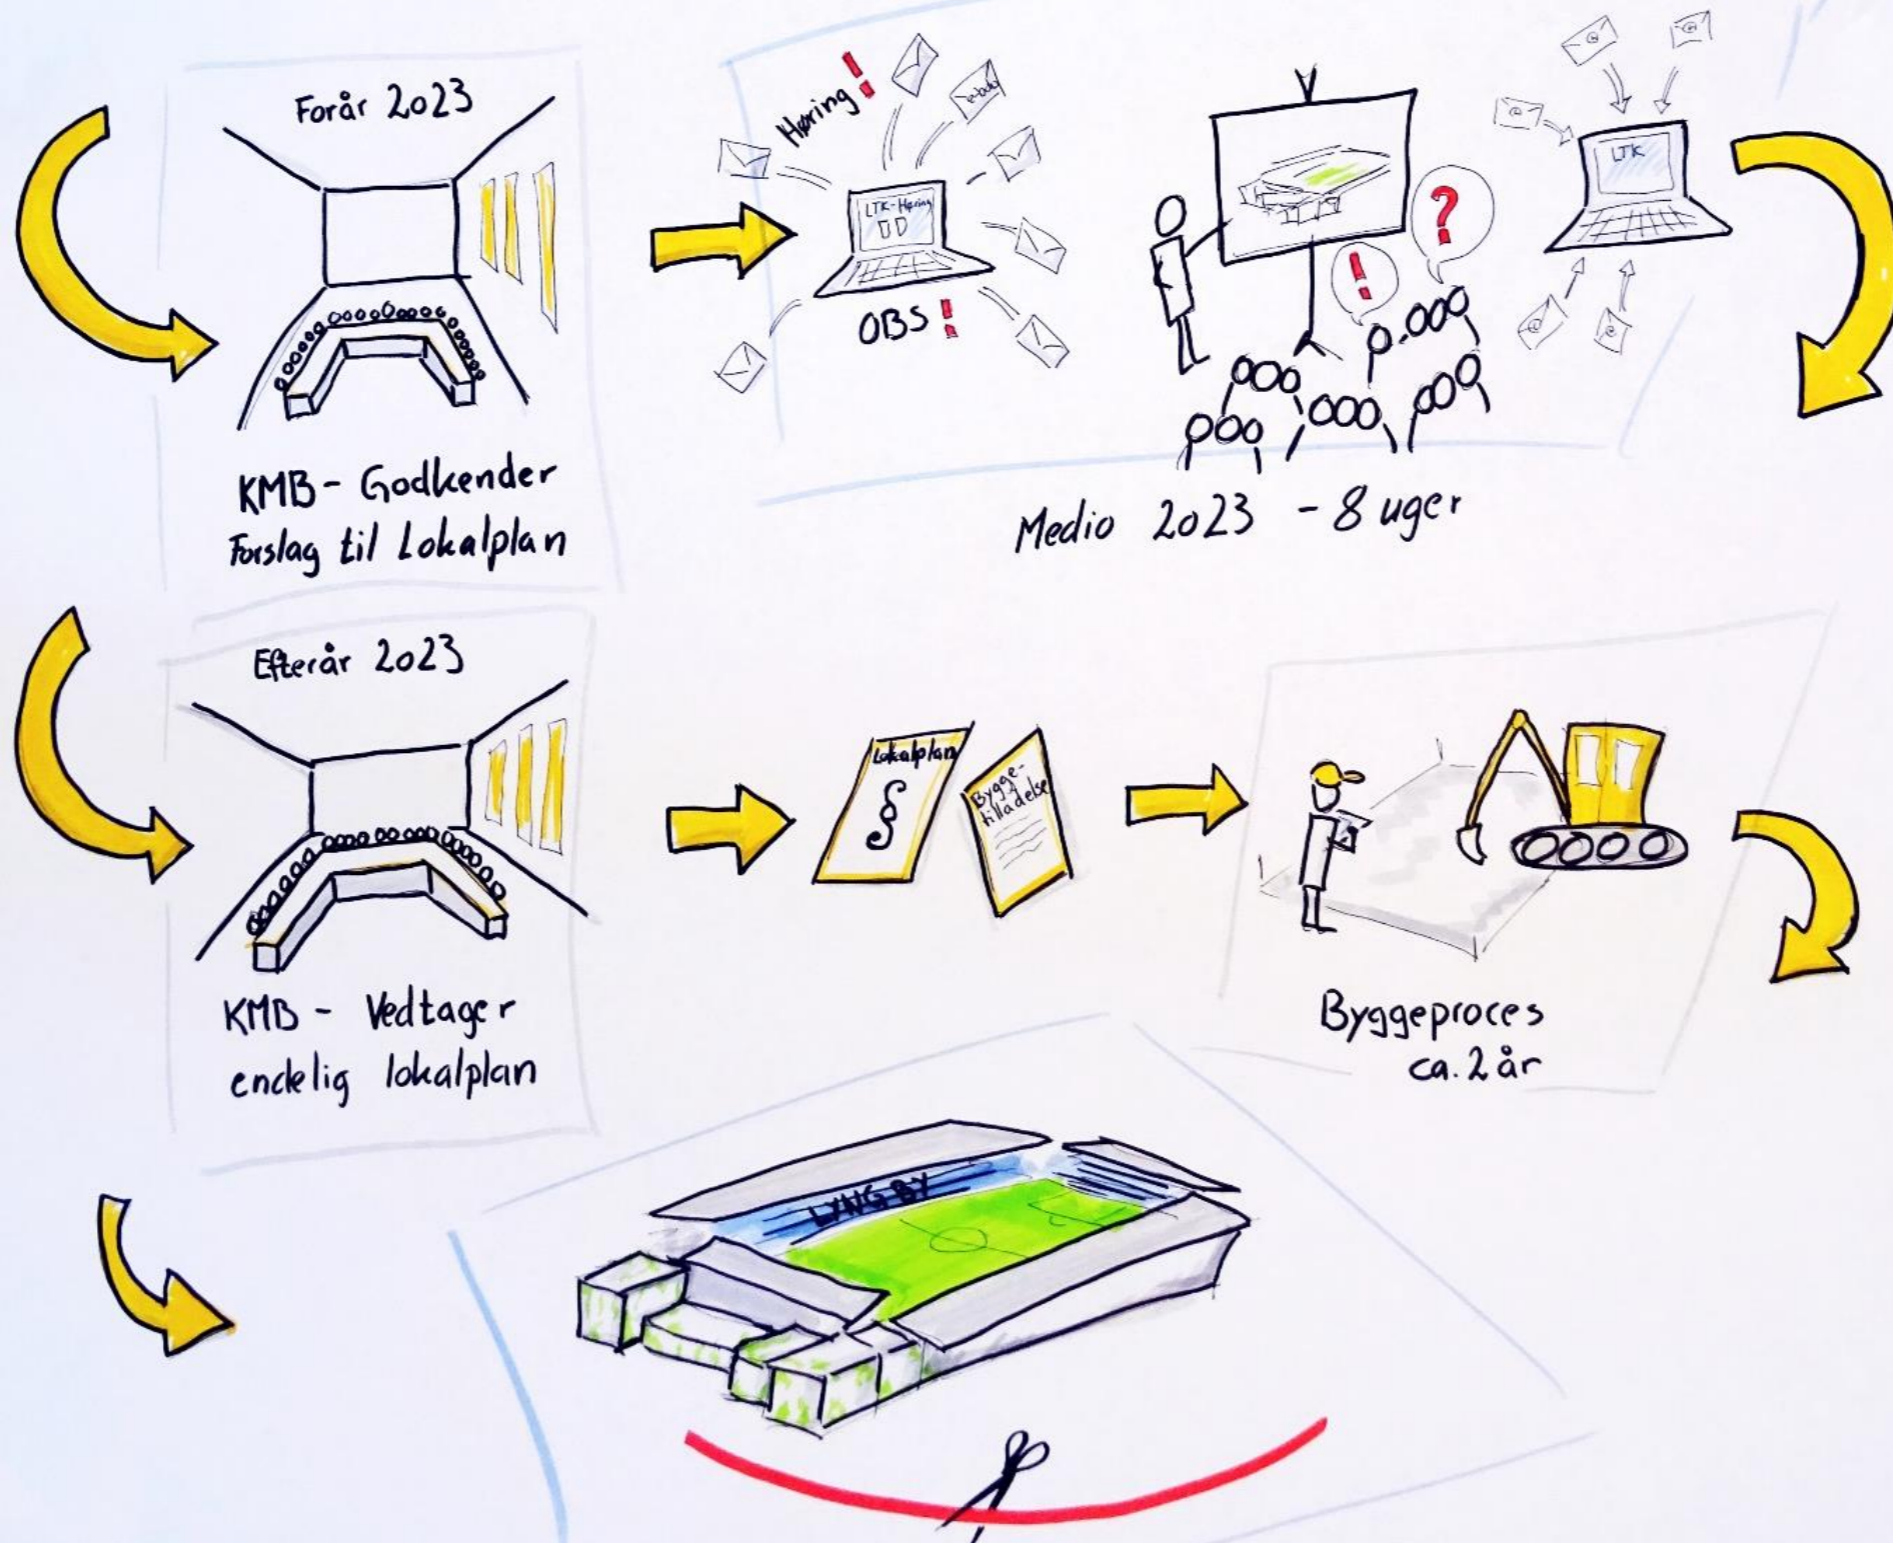 Forår 2023
KMB - Godkender
Forslag til Lokalplan
Høring!
e-boks
LTK-Høring
OBS!
!
?
LTK
Medio 2023 - 8 uger
Efterår 2023
KMB - Vedtager
endelig lokalplan
Lokalplan
§
Bygge-
tilladelse
Byggeproces
ca. 2 år
LYNGBY